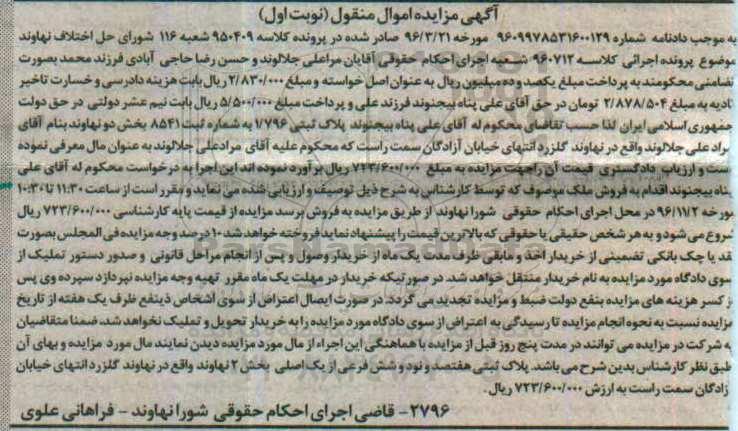 آگهی مزایده اموال منقول (نوبت اول)
به موجب دادنامه شماره ۹۶۰۹۹۷۸۵۳۱۶۰۰۱۲۹ مورخه ۹۶/۳/۲۱ صادر شده در پرونده کلاسه ۹۵۰۴۰۹ شعبه ۱۱۶ شورای حل اختلاف نهاوند
موضوع پرونده اجرائی کلاسه ۹۶۰۷۱۲ شعبه اجرای احکام حقوقی آقایان مراعلی جلالوند و حسن رضا حاجی آبادی فرزند محمد بصورت
تضامنی محکومند به پرداخت مبلغ یکصد و ده میلیون ریال به عنوان اصل خواسته و مبلغ ۲/۸۳۰/۰۰۰ ریال بابت هزینه دادرسی و خسارت تاخیر
تادیه به مبلغ ۲/۸۷۸/۵۰۴ تومان در حق آقای علی پناه بیجنوند فرزند علی و پرداخت مبلغ ۵/۵۰۰/۰۰۰ ریال بابت نیم عشر دولتی در حق دولت
جمهوری اسلامی ایران لذا حسب تقاضای محکوم له آقای علی پناه بیجنوند پلاک ثبتی ۱/۷۹۶ به شماره ثبت ۸۵۴۱ بخش دو نهاوند بنام آقای
مراد علی جلالوند واقع در نهاوند گلزرد انتهای خیابان آزادگان سمت راست که محکوم علیه آقای مرادعلی جلالوند به عنوان مال معرفی نموده
است و ارزیاب دادگستری قیمت آن راجهت مزایده به مبلغ ۷۲۳/۶۰۰/۰۰۰ ریال برآورد نموده اند این اجرا به درخواست محکوم له آقای علی
پناه بیجنوند اقدام به فروش ملک موصوف که توسط کارشناس به شرح ذیل توصیف و ارزیابی شده می نماید و مقرر است از ساعت ۱۱:۳۰ تا ۱۰:۳۰
مورخه ۹۶/۱۱/۲ در محل اجرای احکام حقوقی شورا نهاوند از طریق مزایده به فروش برسد مزایده از قیمت پایه کارشناسی ۷۲۳/۶۰۰/۰۰۰ ریال
شروع می شود و به هر شخص حقیقی یا حقوقی که بالاترین قیمت را پیشنهاد نماید فروخته خواهد شد ۱۰ درصد وجه مزایده فی المجلس بصورت
نقد یا چک بانکی تضمینی از خریدار اخذ و مابقی ظرف مدت یک ماه از خریدار وصول و پس از انجام مراحل قانونی و صدور دستور تملیک از
سوی دادگاه مورد مزایده به نام خریدار منتقل خواهد شد. در صورتیکه خریدار در مهلت یک ماه مقرر تهیه وجه مزایده نپردازد سپرده وی پس
از کسر هزینه های مزایده بنفع دولت ضبط و مزایده تجدید می گردد. در صورت ایصال اعتراض از سوی اشخاص ذینفع ظرف یک هفته از تاریخ
مزایده نسبت به نحوه انجام مزایده تا رسیدگی به اعتراض از سوی دادگاه مورد مزایده را به خریدار تحویل و تملیک نخواهد شد. ضمنا متقاضیان
به شرکت در مزایده می توانند در مدت پنج روز قبل از مزایده با هماهنگی این اجراء از مال مورد مزایده دیدن نمایند مال مورد مزایده و بهای آن
طبق نظر کارشناس بدین شرح می باشد. پلاک ثبتی هفتصد و نود و شش فرعی از یک اصلی بخش ۲ نهاوند واقع در نهاوند گلزرد انتهای خیابان
آزادگان سمت راست به ارزش ۷۲۳/۶۰۰/۰۰۰ ریال.
۲۷۹۶- قاضی اجرای احکام حقوقی شورا نهاوند - فراهانی علوی